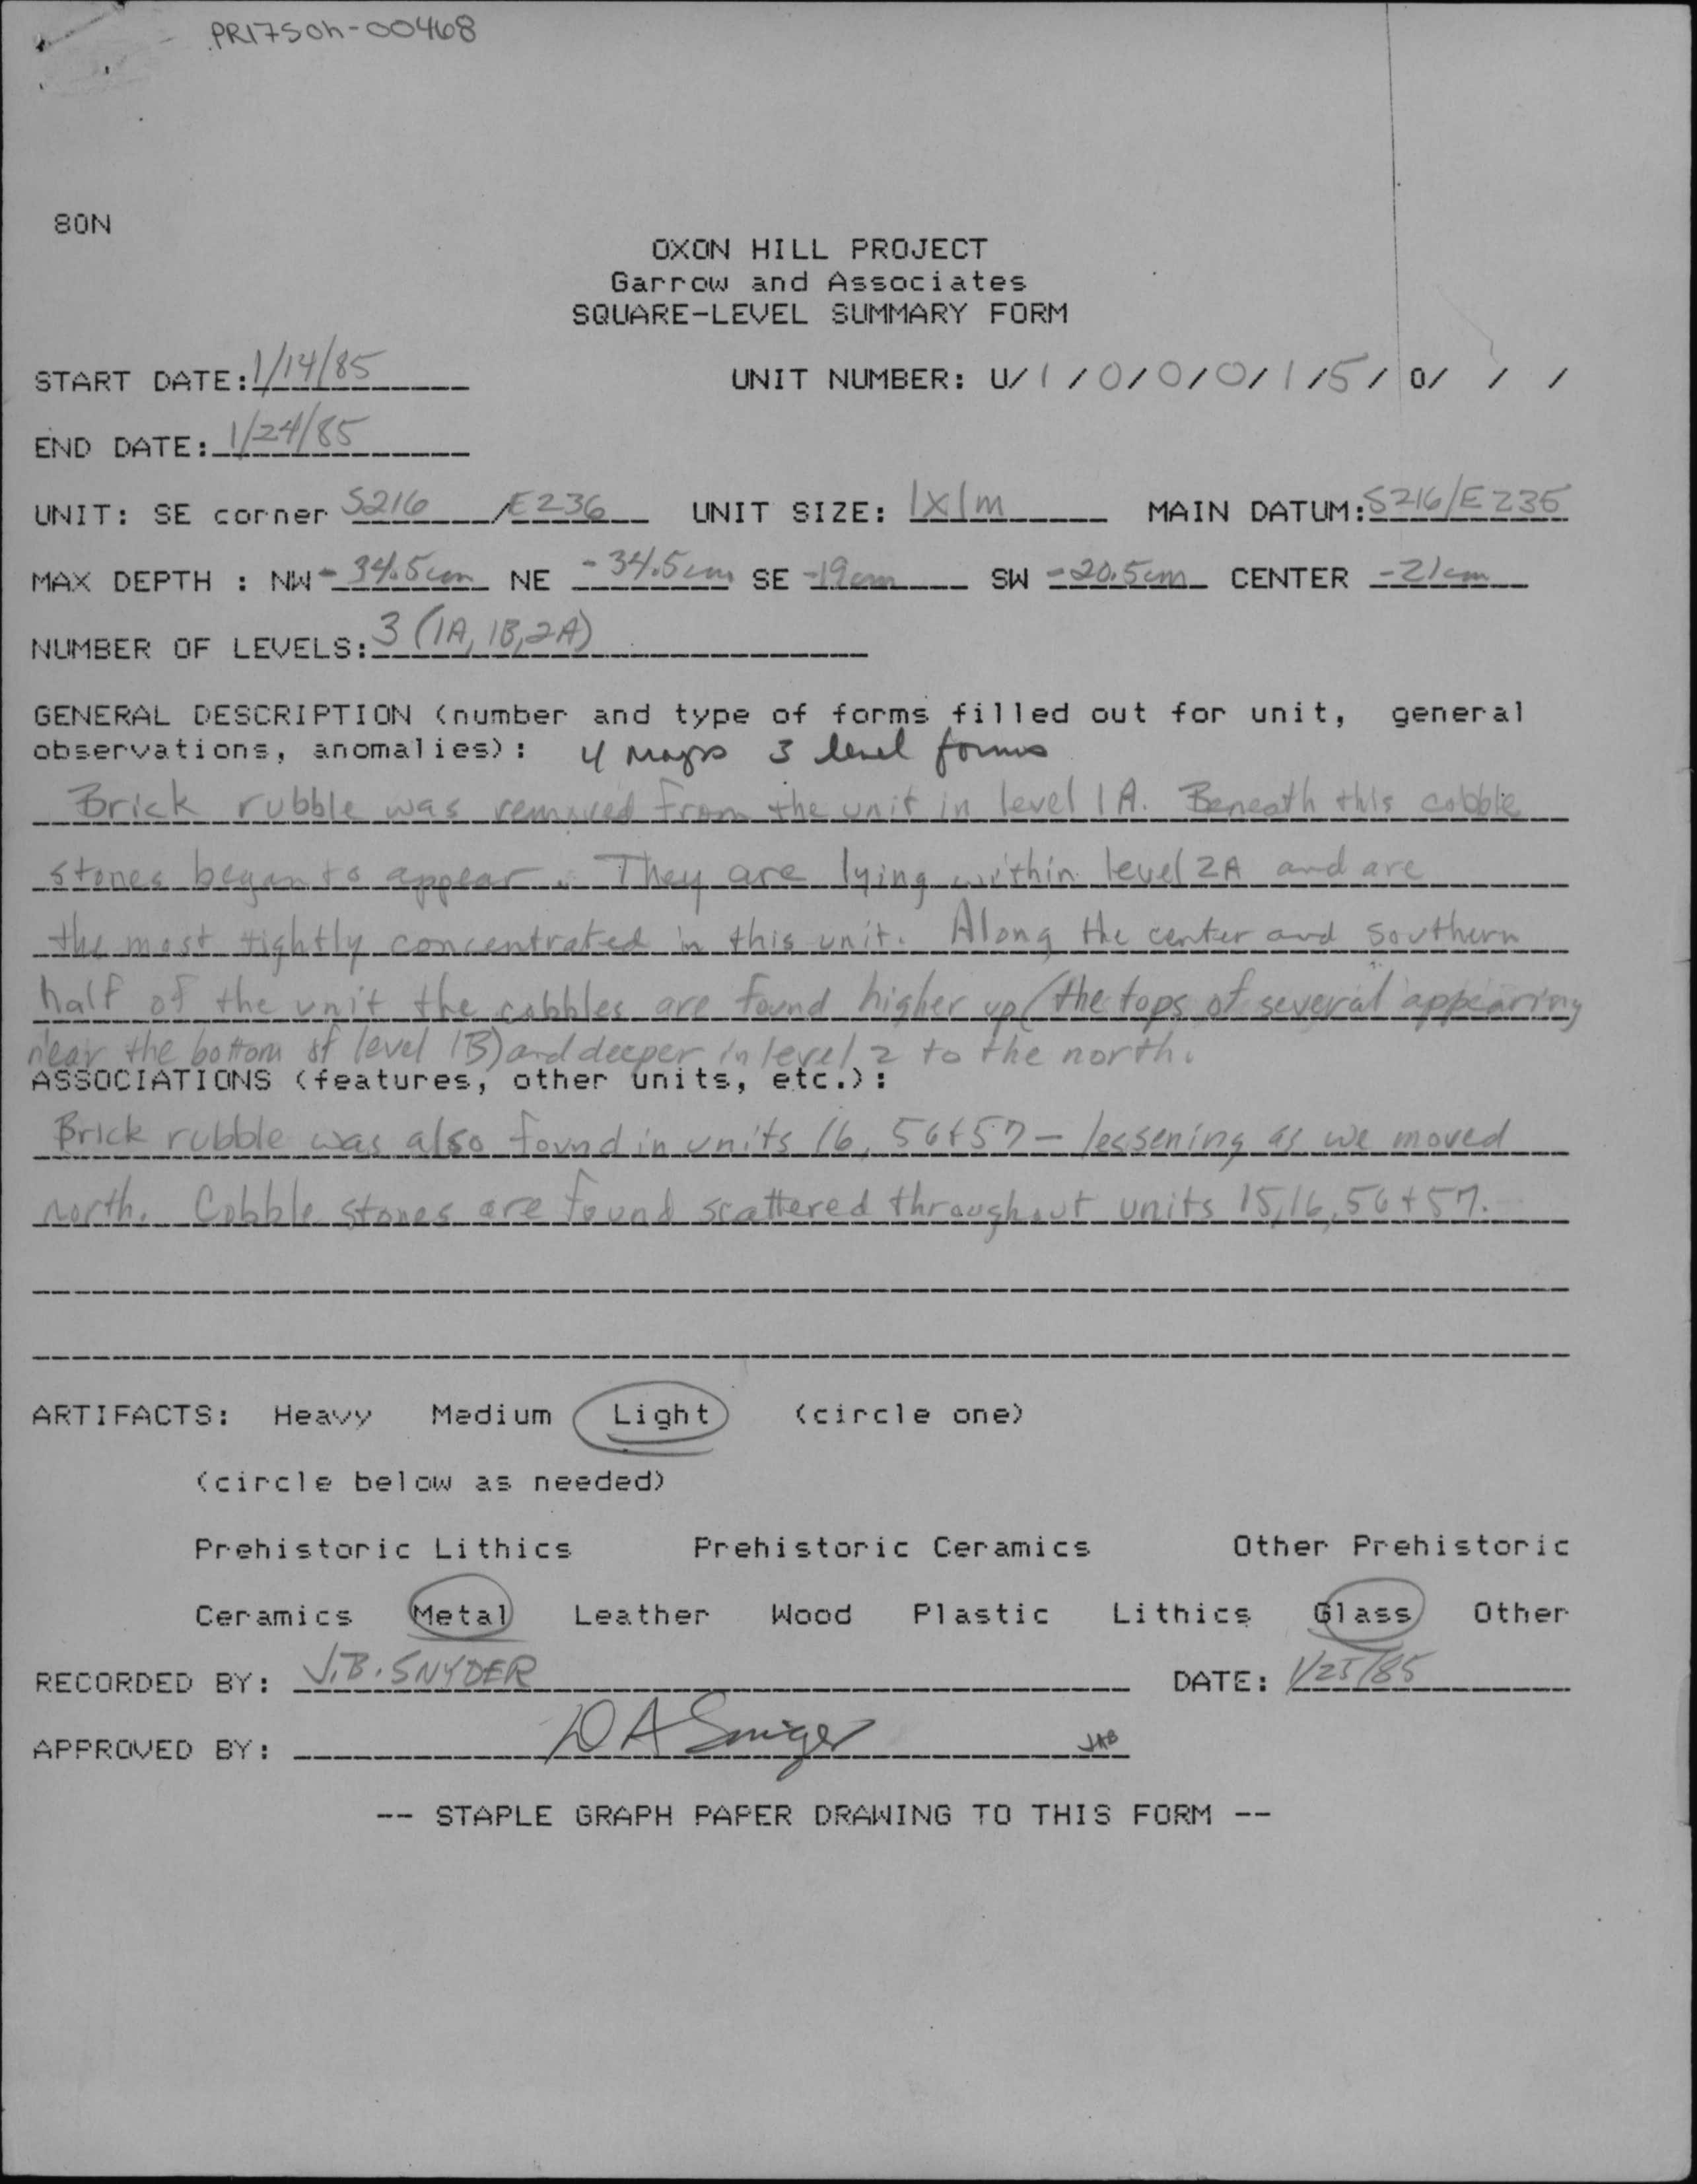 PR175oh-00468
80N
OXON HILL PROJECT
Garrow and Associates
SQUARE-LEVEL SUMMARY FORM
START DATE: 1/14/85 UNIT NUMBER: U/1/0/0/0/1/5/0/ / /
END DATE: 1/24/85
UNIT: SE corner S216 /E236 UNIT SIZE: 1x1m MAIN DATUM: S216/E235
MAX DEPTH : NW -34.5cm NE -34.5cm SE -19cm SW -20.5cm CENTER -21cm
NUMBER OF LEVELS: 3 (1A, 1B, 2A)
GENERAL DESCRIPTION (number and type of forms filled out for unit, general
observations, anomalies): 4 maps 3 level forms
Brick rubble was removed from the unit in level 1A. Beneath this cobble
stones began to appear. They are lying within level 2A and are
the most tightly concentrated in this unit. Along the center and southern
half of the unit the cobbles are found higher up (the tops of several appearing
near the bottom of level 1B) and deeper in level 2 to the north.
ASSOCIATIONS (features, other units, etc.):
Brick rubble was also found in units 16, 56+57 - lessening as we moved
north. Cobble stones are found scattered throughout units 15, 16, 56+57.
ARTIFACTS: Heavy Medium Light (circle one)
(circle below as needed)
Prehistoric Lithics Prehistoric Ceramics Other Prehistoric
Ceramics Metal Leather Wood Plastic Lithics Glass Other
RECORDED BY: J.B. SNYDER DATE: 1/25/85
APPROVED BY: D A
-- STAPLE GRAPH PAPER DRAWING TO THIS FORM --